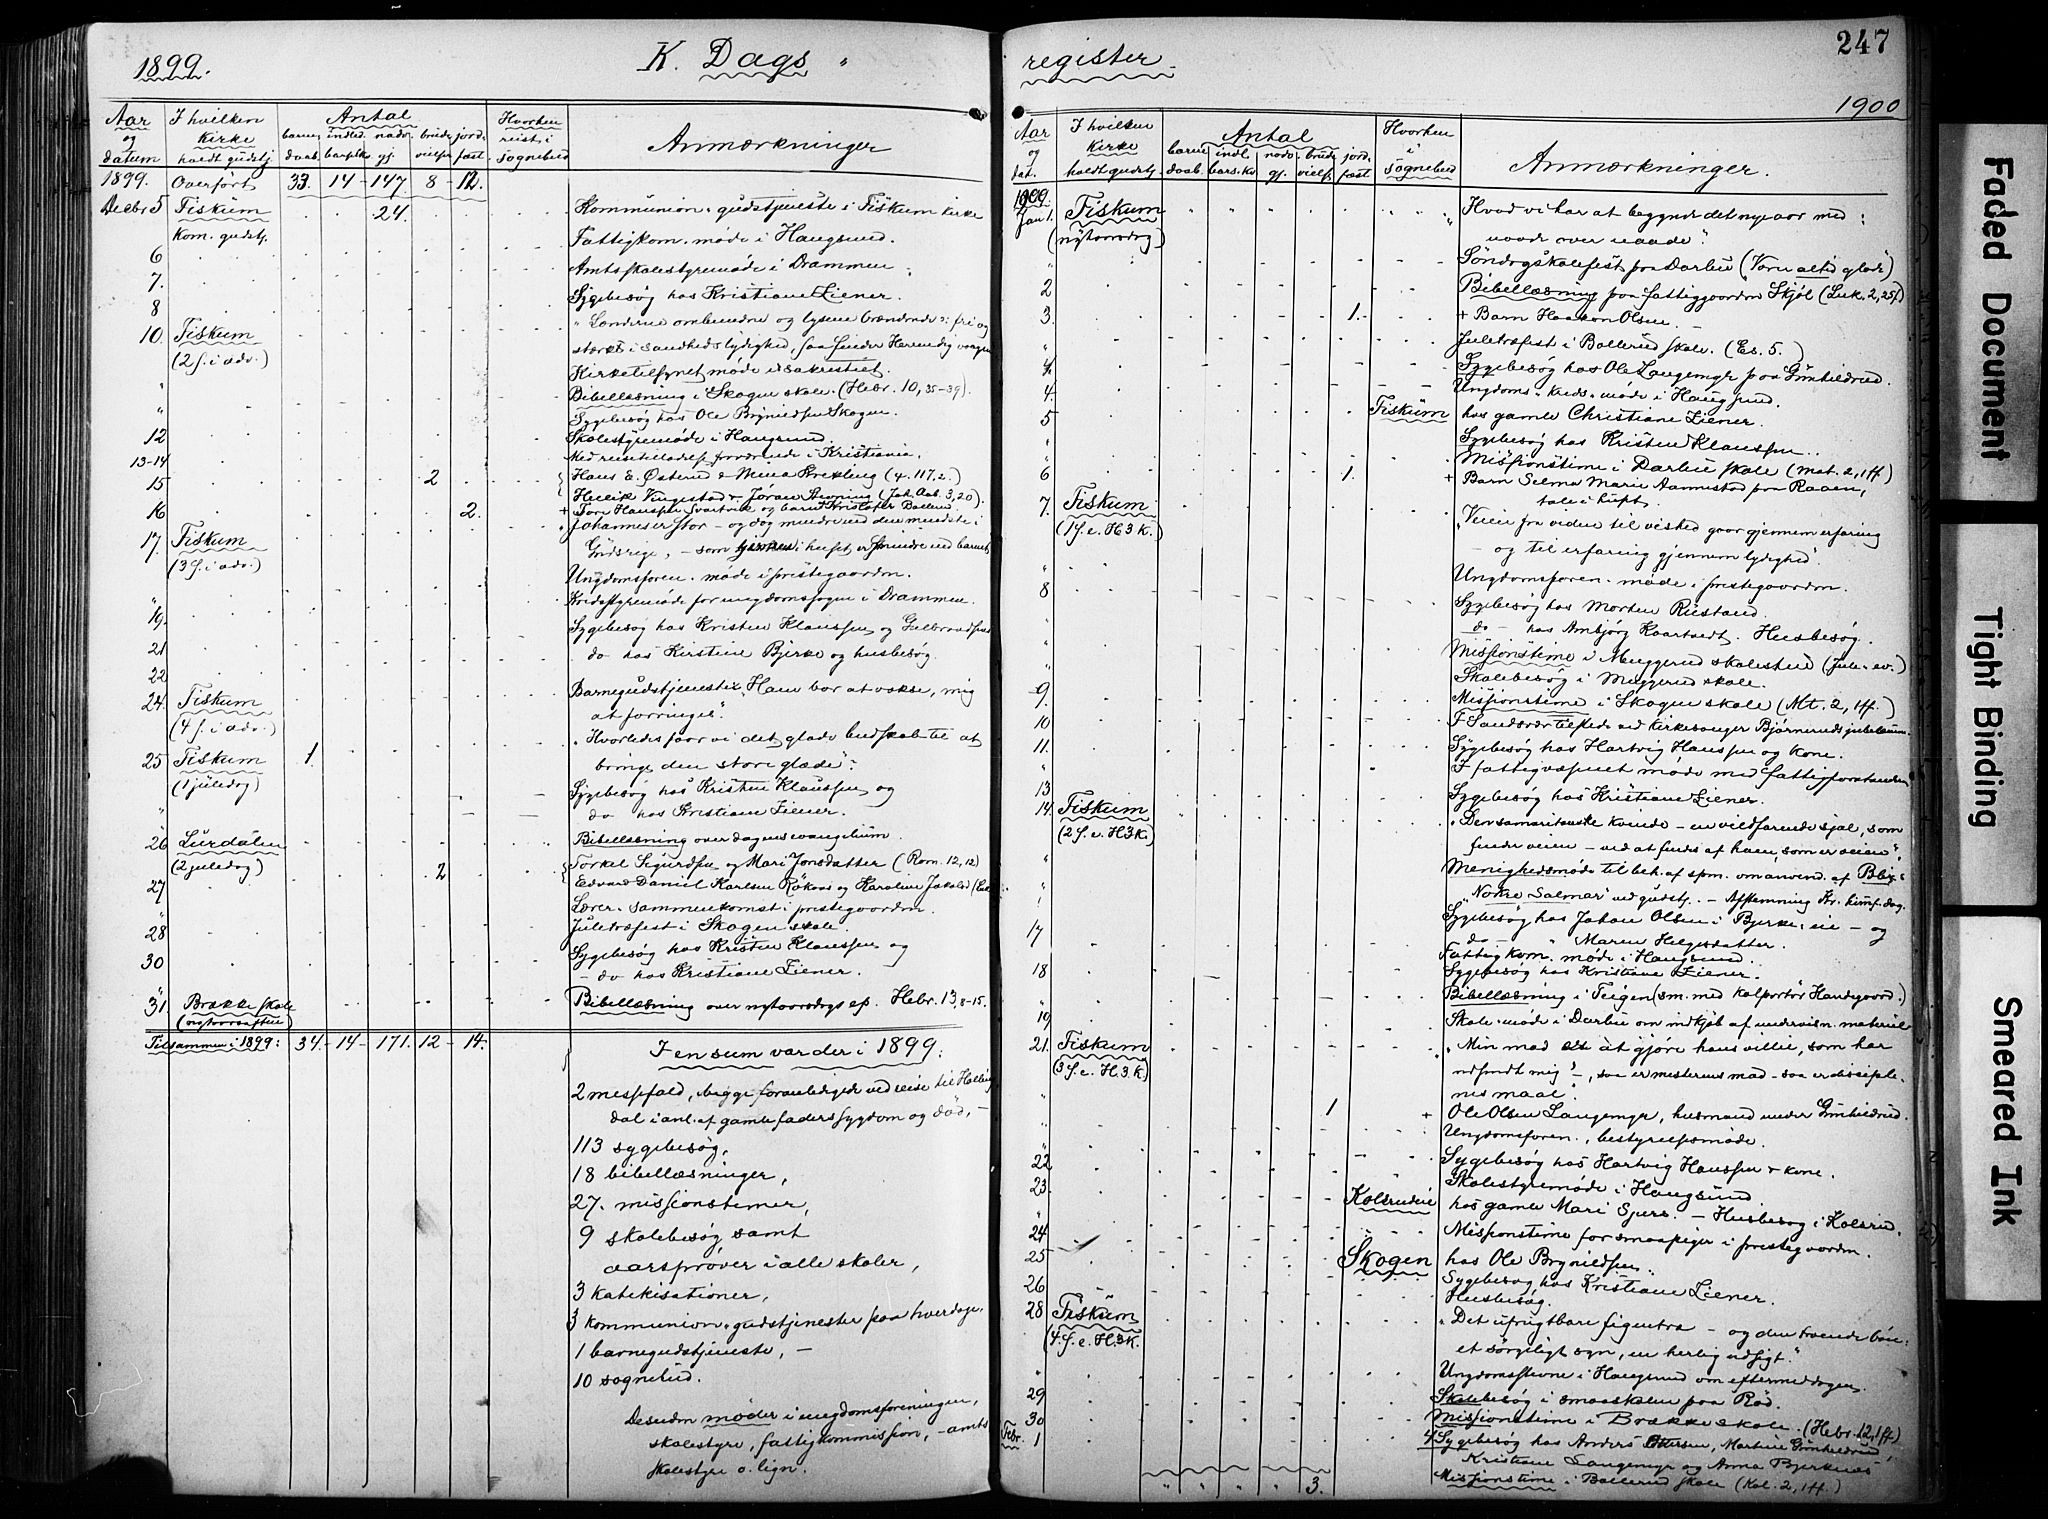 1899.
K. Dags-
Aar og datum
I hvilken kirke holdt gudstj.
Antal
barned daab.
indled. barselkv.
nadv. gj.
brude vielser
jord fæst.
Hvorhen reist i sognebud
Anmærkninger
1899. Overført 33. 14 - 147. 8 - 12.
Decbr 5 Fiskum 24. Kommunion-gudstjeneste i Fiskum kirke
Kom. gudstj.
6 Fattigkom. møde i Haugsund.
7. Amtsskolestyremøde i Drammen
8 Sygebesøg hos Kristiane Ziener.
10. Fiskum "Lenderne ombundne og lysene brændende": fri og
(2 s. i adv.) stærk i sandheds lydighed, saa finder Herren dig vaagen
Kirketilsynet møde i sakristiet.
" Bibellæsning i Skogen skole. (Hebr. 10, 35-39).
" Sygebesøg hos Ole Brynildsen Skogen.
12 Skolestyremøde i Haugsund.
13-14 Med reisetilladelse fraværende i Kristiania.
15 2 Hans E. Østerud & Mina Krekling (4. 117.2.)
Henrik Vingestad & Jøran Aasning (Joh. Aab. 3,20).
16 2. + Tore Hanssen Svartvik og barnet Kristofer Bollerud.
17. Fiskum "Johannes er stor - og dog mindre end den mindste i
(3 s. i adv.) Gudsrige, - som tjeneren i huset er mindre end barnet
" Ungdomsforen. møde i prestegaarden.
Kredsstyremøde for ungdomssagen i Drammen.
19. Sygebesøg hos Kristen Klaussen og Gulbrandsen
21 do hos Kirstine Bjerke og husbesøg.
22
24. Fiskum Barnegudstjeneste "Ham bør at vokse, mig
(4 s. i adv.) at forringes".
25 Fiskum 1. "Hvorledes faar vi det glade budskab til at
(1 juledag) bringe den store glæde":
Sygebesøg hos Kristen Klaussen og
" do hos Kristiane Ziener.
26 Lurdalen Bibellæsning over dagens evangelium.
(2 juledag) Torkel Sigurdsen og Mari Jonsdatter (Rom. 12,12)
27 2 Edvard Daniel Karlsen Røkaas og Karoline Jakobsd
" Lærer-sammenkomst i prestegaarden.
28 Juletræfest i Skogen skole.
30 Sygebesøg hos Kristen Klaussen og
- do hos Kristiane Ziener.
31 Brække skole Bibellæsning over nytaarsdags ep. Hebr. 13 8-15.
(nytaarsaften)
Tilsammen i 1899: 34. - 14 - 171. 12 - 14.
I en sum var der i 1899:
2 messefald, begge foranledigede ved reise til Halling-
dal i anl. af gamle faders sygdom og død, -
113 sygebesøg,
18 bibellæsninger,
27. missionstimer,
9 skolebesøg samt
aarsprøver i alle skoler,
3 katekisationer,
3 kommunion-gudstjenester paa hverdage,
1 barnegudstjeneste, -
10 sognebud.
Desuden møder i ungdomsforeningen,
skolestyre, fattigkommission, - amts
skolestyre o. lign.
register
247
1900
Aar og dat.
I hvilken kirke holdt gudstj.
Antal
barne daab.
indl. bars. kv
nadv. gj.
brude vielser
jord. fæst.
Hvorhen i sognebud
Anmærkninger.
1900.
Jan 1. Fiskum "Hvad vi har at begynde det nye aar med:
(nytaarsdag) naade over naade".
" Søndagsskolefest paa Darbu ("Vær altid glade")
2 Bibellæsning paa fattiggaarden Skjøl (Luk. 2, 25ff)
3. 1. + Barn Haakon Olsen.
" Juletræfest i Bollerud skole. (Es. 5.)
4 Sygebesøg hos Ole Langemyr paa Gunhildrud.
4. Ungdoms-kreds-møde i Haugsund.
5 Fiskum hos gamle Christiane Ziener.
" Sygebesøg hos Kristen Klaussen.
" Missionstime i Darbu skole (Mat. 2, 1ff)
6 1. + Barn Selma Marie Aannestad paa Raaen,
tale i huset.
7. Fiskum "Veien fra viden til vished gaar gjennem erfaring
(1 s. e. H3K.) - og til erfaring gjennem lydighed".
" Ungdomsforen. møde i prestegaarden.
8 Sygebesøg hos Morten Rustand.
" do - hos Ambjørg Kaartvedt. Husbesøg.
" Missionstime i Muggerud skolestue (Jule-ev.)
" Skolebesøg i Muggerud skole.
9. Missionstime i Skogen skole (Mt. 2, 1ff.)
10 I Sandsvær tilstede ved kirkesanger Bjørneruds jubelæum.
11. Sygebesøg hos Hartvig Hanssen og kone.
" I fattigvæsenet møde med fattigforstanderen
13 Sygebesøg hos Kristiane Ziener.
14. Fiskum "Den samaritanske kvinde - en vildfarende sjæl, som
(2 s. e. H3K.) finder veien - ved at findes af ham, som er veien".
" Menighedsmøde til beh. af spm. om anvend. af Blix
" "Nokre Salmar" ved gudstj. - Afstemning Kr. himf. dag.
" Sygebesøg hos Johan Olsen i Bjerke-eie - og
17 do - " Maren Helgesdatter.
" Fattigkom. møde i Haugsund.
18 Sygebesøg hos Kristiane Ziener.
" Bibellæsning i Teigen (sm. med kolportør Handegaard.)
19 Skole-møde i Darbu om indkjøb af undervisn. materiel
21. Fiskum "Min mad er at gjøre hans villie, som har
(3 s. e. H.3.K.) udsendt mig", - saa er mesterens mad - saa er disciple-
nes maal.
" 1 + Ole Olsen Langemyr, husmand under Gunhildrud.
" Ungdomsforen., bestyrelsesmøde.
22 Sygebesøg hos Hartvig Hanssen & kone.
23. Skolestyremøde i Haugsund.
" Kolsrudeie hos gamle Mari Sjers. - Husbesøg i Kolsrud.
24 Missionstime for smaapiger i prestegaarden.
25 Skogen hos Ole Brynildsen.
26 Sygebesøg hos Kristiane Ziener.
Husbesøg.
28 Fiskum "Det ufrugtbare figentræ - og den troende bøn:
(4. s. e. H3K. et sørgeligt syn, en herlig udsigt."
" Ungdomsstevne i Haugsund om eftermiddagen.
29 Skolebesøg i smaaskolen paa Rød.
30 Missionstime i Brække skole. (Hebr. 12, 1ff)
Febr. 1 4 Sygebesøg hos Anders Ottersen, Martin Gunhildrud
Kristiane Langemyr og Anna Bjerknæs
" " " " 3. Missionstime i Bollerud skole (Kol. 2, 1ff.)
Faded Document
Tight Binding
Smeared Ink